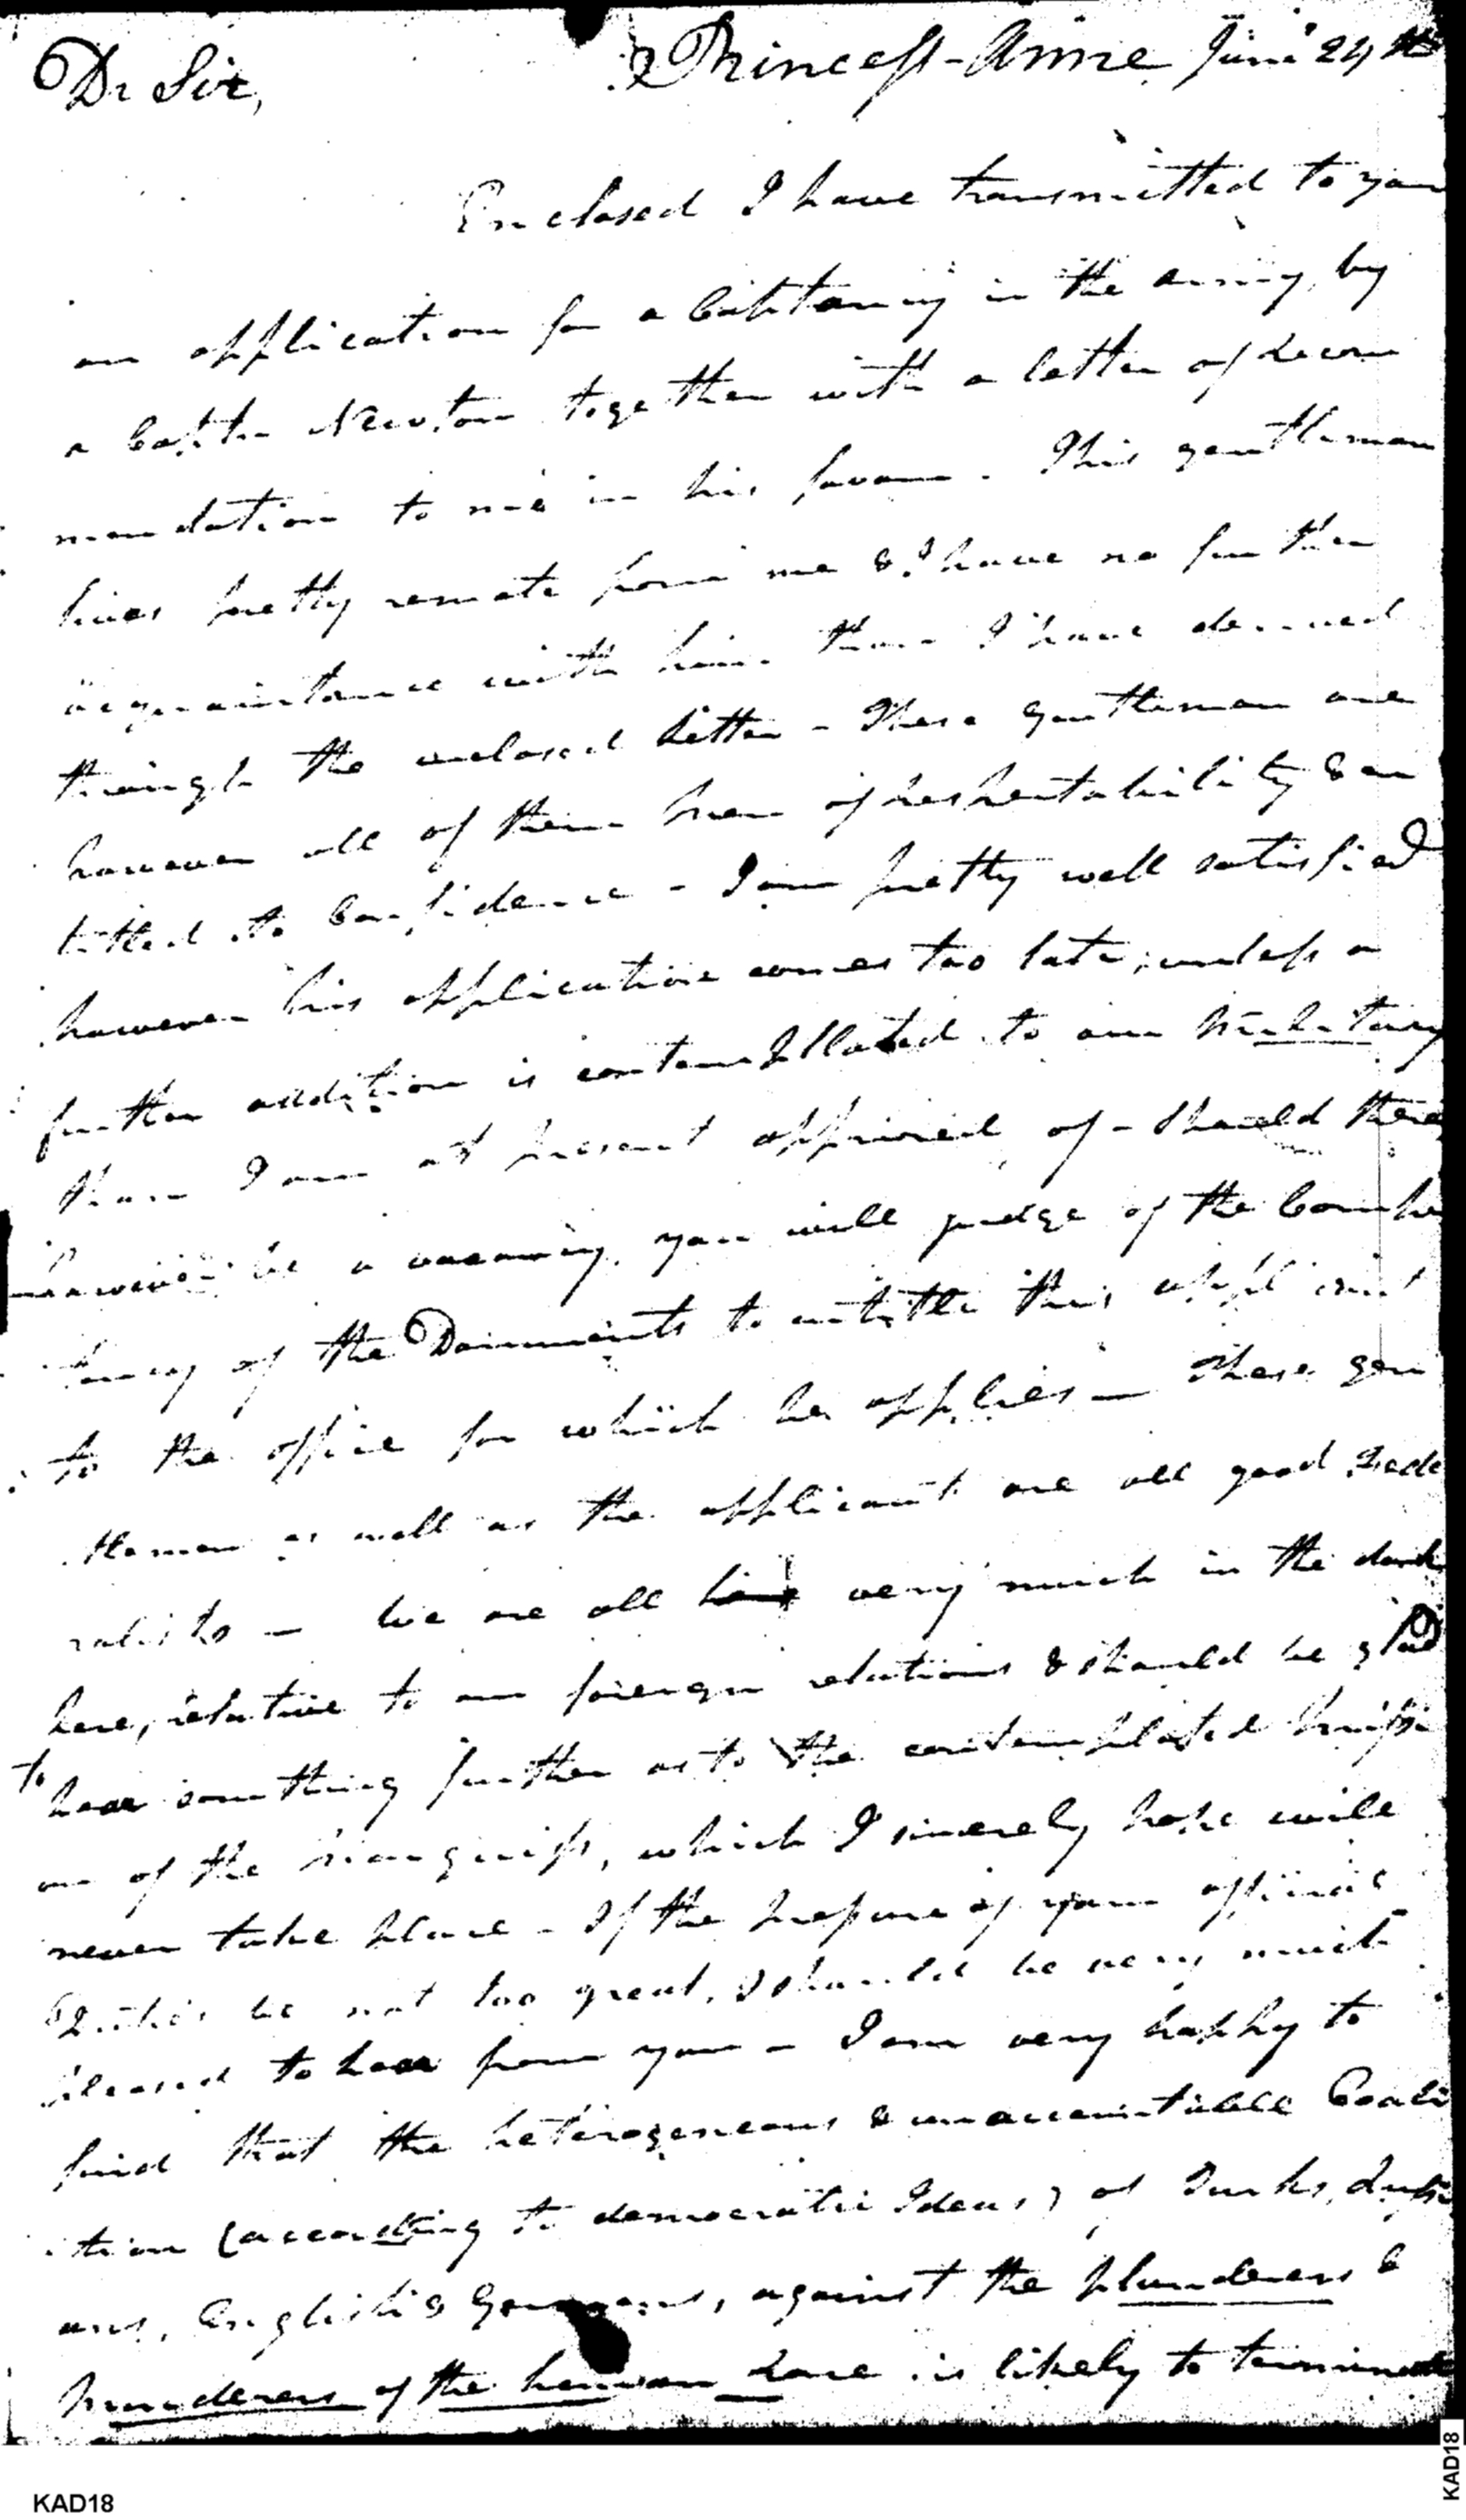 Dr Sir,
Princess-Anne June 29th
Enclosed I have transmitted to you
an application for a Captaincy in the army, by
a Captn Newton together with a letter of recom
mendation to me in his favour - This gentleman
lives pretty remote from me & I have no further
acquaintance with him than I have derived
through the enclosed letter - These gentlemen are
however all of them men of respectability & en
titled to Confidence - I am pretty well satisfied
however his application comes too late, unless a
further addition is contemplated to our Military
than I am at present apprised of - Should there
however be a vacancy, you will judge of the Compe
tency of the Documents to entitle this applicant
to the office for which he applies - These gen
tlemen as well as the applicant are all good Fede
ralists - We are all very much in the dark
here, relative to our foreign relations & should be glad
to hear something further as to the contemplated Missi
on of the , which I sincerely hope will
never take place - If the pressure of your official
Duties be not too great, I should be very much
pleased to hear from you - I am very happy to
find that the heterogeneous & unaccountable Coali
ition (according to democratic Ideas) of Turks, Russi
ans, English & Germans, against the plunderers &
murderers of the human race is likely to terminate
KAD18
KAD18